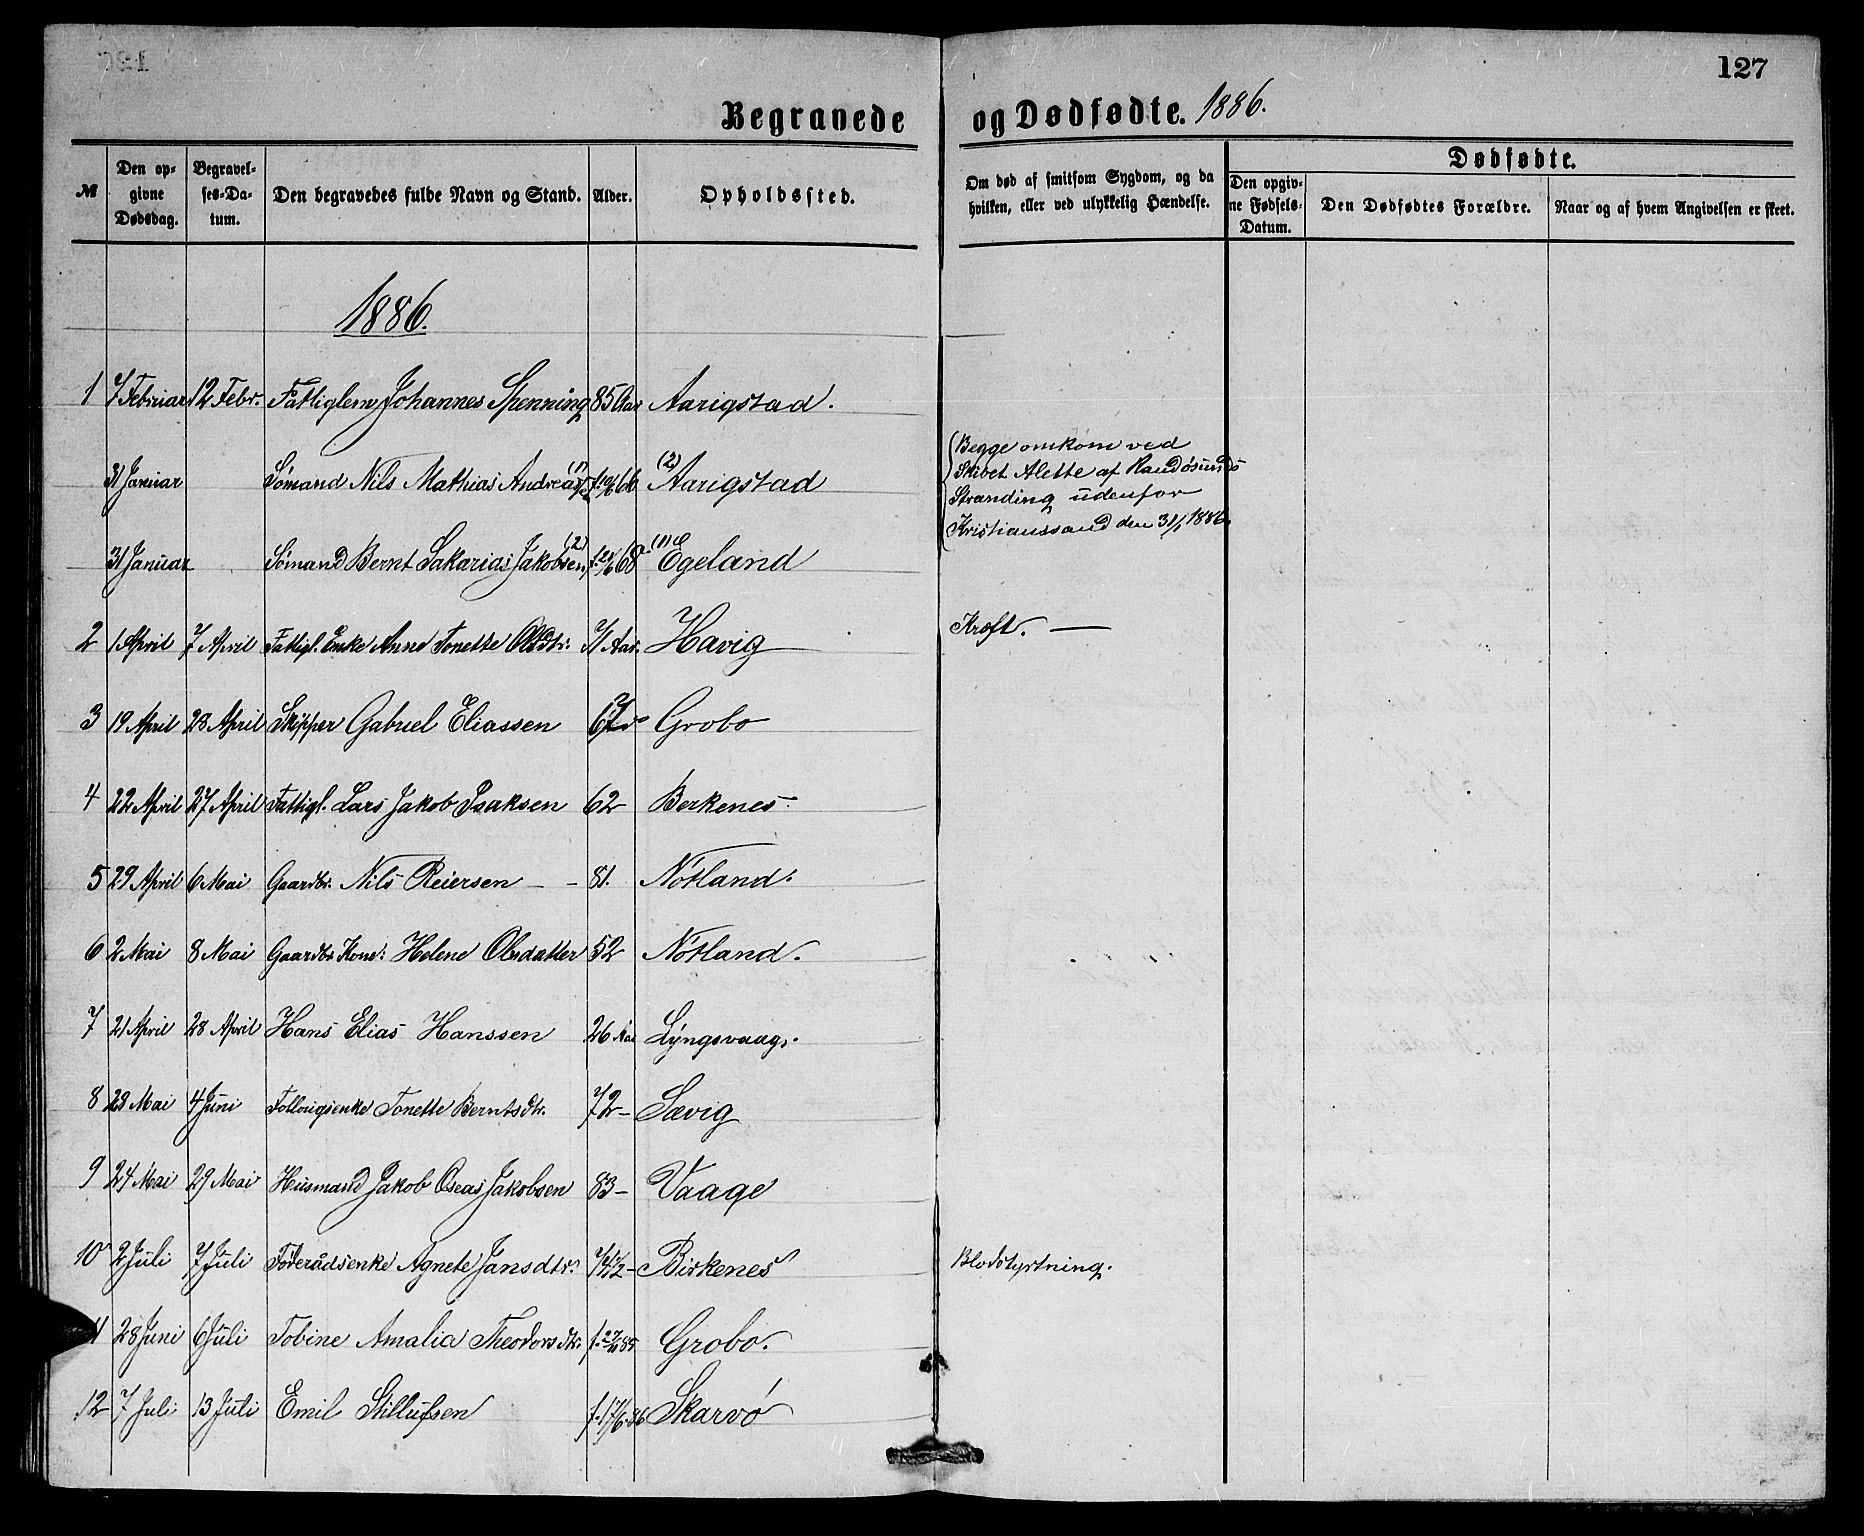 127
Begravede og Dødfødte. 1886.
№ | Den opgivne Dødsdag. | Begravelses-Datum. | Den begravedes fulde Navn og Stand. | Alder. | Opholdssted. | Om død af smitsom Sygdom, og da hvilken, eller ved ulykkelig Hændelse. | Dødfødte. | Den opgivne Fødsels-Datum. | Den Dødfødtes Forældre. | Naar og af hvem Angivelsen er skeet.
1886.
1 7 Februar 12 Febr. Fattiglem Johannes Spenning 85 Aar Aarigstad.
31 Januar Sømand Nils Mathias (1) 66 (2) Aarigstad
Begge omkom ved
Skibet Alette af Randøsunds
Stranding udenfor
Kristianssand den 31/1 1886.
31 Januar Sømand Bernt Sakarias Jakobsen (2) 68 (1) Egeland
2 1 April 7 April Fattigl. Enke Anne Tonette Olsdtr. 71 Aar. Havig Kræft. —
3 19 April 23 April Skipper Gabriel Eliassen Grobo
4 22 April 27 April Fattigl. Lars Jakob Isaksen 62 Berkenes
5 29 April 6 Mai Gaardbr. Nils Reiersen - - 81. Nótland.
6 2 Mai 8 Mai Gaardbr. Kone: Helene Olsdatter 52 Nótland.
7 21 April 28 April Hans Elias Hanssen 26 Aar Lyngsvaag.
8 28 Mai 4 Juni Tonette Berntsdtr. 72 - Sævig
9 24 Mai 29 Mai Husmand Jakob Oseas Jakobsen 83 - Vaage
10 2 Juli 7 Juli Føderådsenke Agnete Jansdtr. Birkenes Blodstyrtning.
11 28 Juni 6 Juli Tobine Amalia Theodorsdtr. Grobo.
12 7 Juli 13 Juli Emil Stillufsen f. 17/6 86 Skarvó